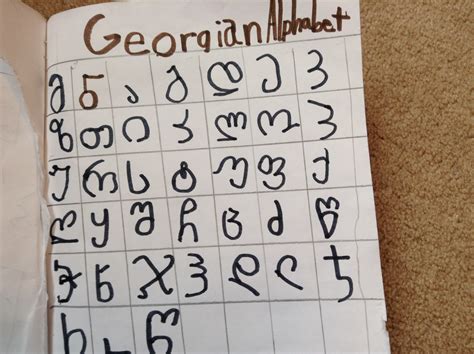 Georgian Alphabet
მ ნ ა გ დ ე ვ
ზ თ ი კ ლ ო პ
ჟ რ ს ტ უ ფ ქ
ღ ყ შ ჩ ც ძ წ
ჭ ხ ჯ ჰ